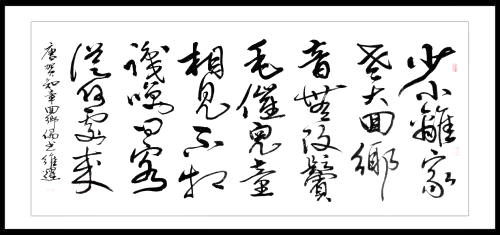 少小離家
老大回鄉
音無改鬢
毛催兒童
相見不相
識咲问客
從何處來
唐賀知章回鄉偶书